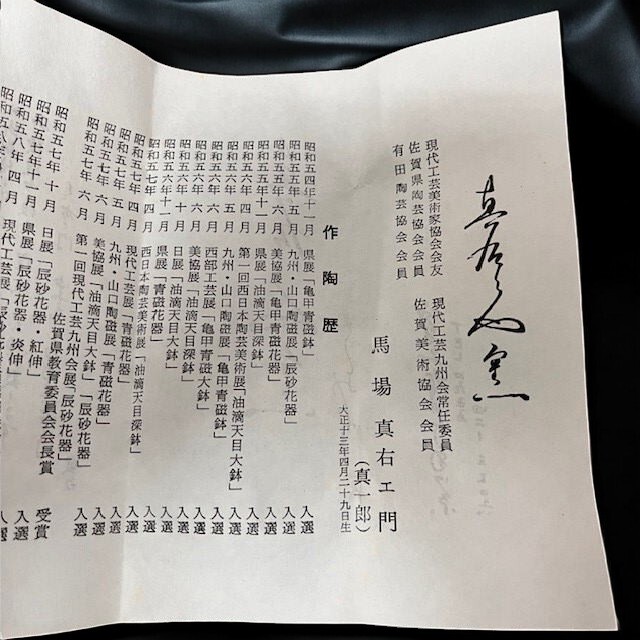 真右ヱ門窯
現代工芸美術家協会会友　現代工芸九州会常任委員
佐賀県陶芸協会会員　佐賀美術協会会員
有田陶芸協会会員
馬場真右ヱ門
（真一郎）
大正十三年四月二十九日生
作陶歴
昭和五四年十一月　県展「亀甲青磁鉢」　入選
昭和五五年五月　九州・山口陶磁展「辰砂花器」　入選
昭和五五年六月　美協展「亀甲青磁花器」　入選
昭和五五年十一月　県展「油滴天目大鉢」　入選
昭和五六年四月　第一回西日本陶芸美術展「油滴天目大鉢」　入選
昭和五六年五月　九州・山口陶磁展「亀甲青磁鉢」　入選
昭和五六年六月　西部工芸展「亀甲青磁大鉢」　入選
昭和五六年六月　美協展「油滴天目大鉢」　入選
昭和五六年十月　日展「油滴天目大鉢」　入選
昭和五六年十一月　県展「青磁花器」　入選
昭和五七年四月　西日本陶芸美術展「油滴天目大鉢」　入選
昭和五七年四月　現代工芸展「青磁花器」　入選
昭和五七年五月　九州・山口陶磁展「油滴天目深鉢」　入選
昭和五七年六月　美協展「油滴天目鉢」「青磁花器」　入選
昭和五七年六月　第一回現代工芸九州会展「辰砂花器」
佐賀県教育委員会会長賞　受賞
昭和五七年十月　日展「辰砂花器・紅伸」　入選
昭和五七年十一月　県展「辰砂花器・炎伸」　入選
昭和五八年四月　現代工芸展「辰砂花器